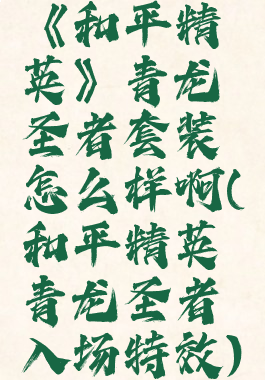 《和平精
英》青龙
圣者套装
怎么样啊(
和平精英
青龙圣者
入场特效)